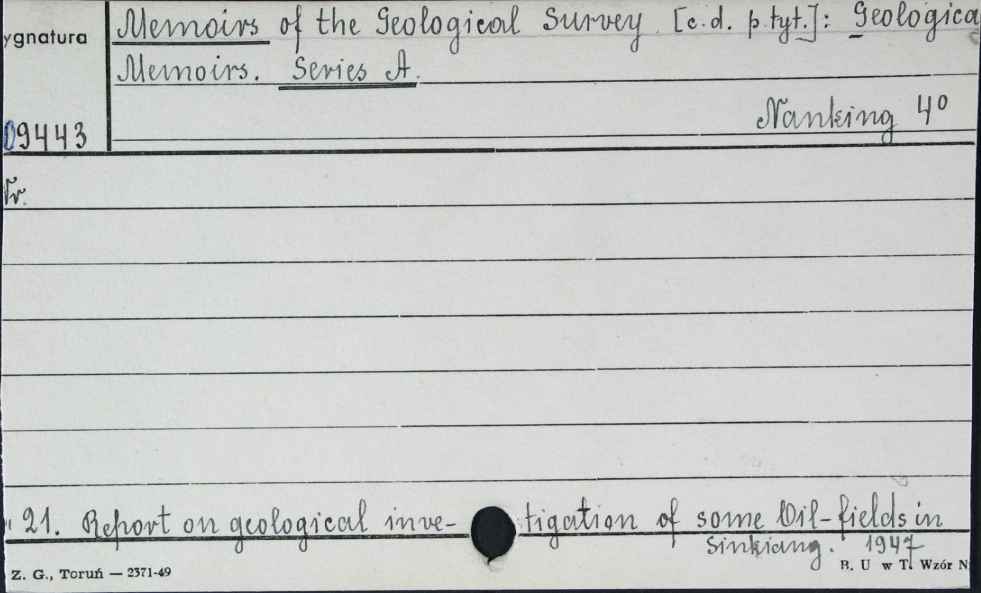 ygnatura
Memoirs of the Geological Survey [c.d. p. tyt.]: Geologica
Memoirs. Series A.
Nanking 4°
09443
Nr.
" 21. Report on geological inve- tigation of some Oil-fields in
Sinkiang. 1947
Z. G., Toruń — 2371-49
B. U w T. Wzór N